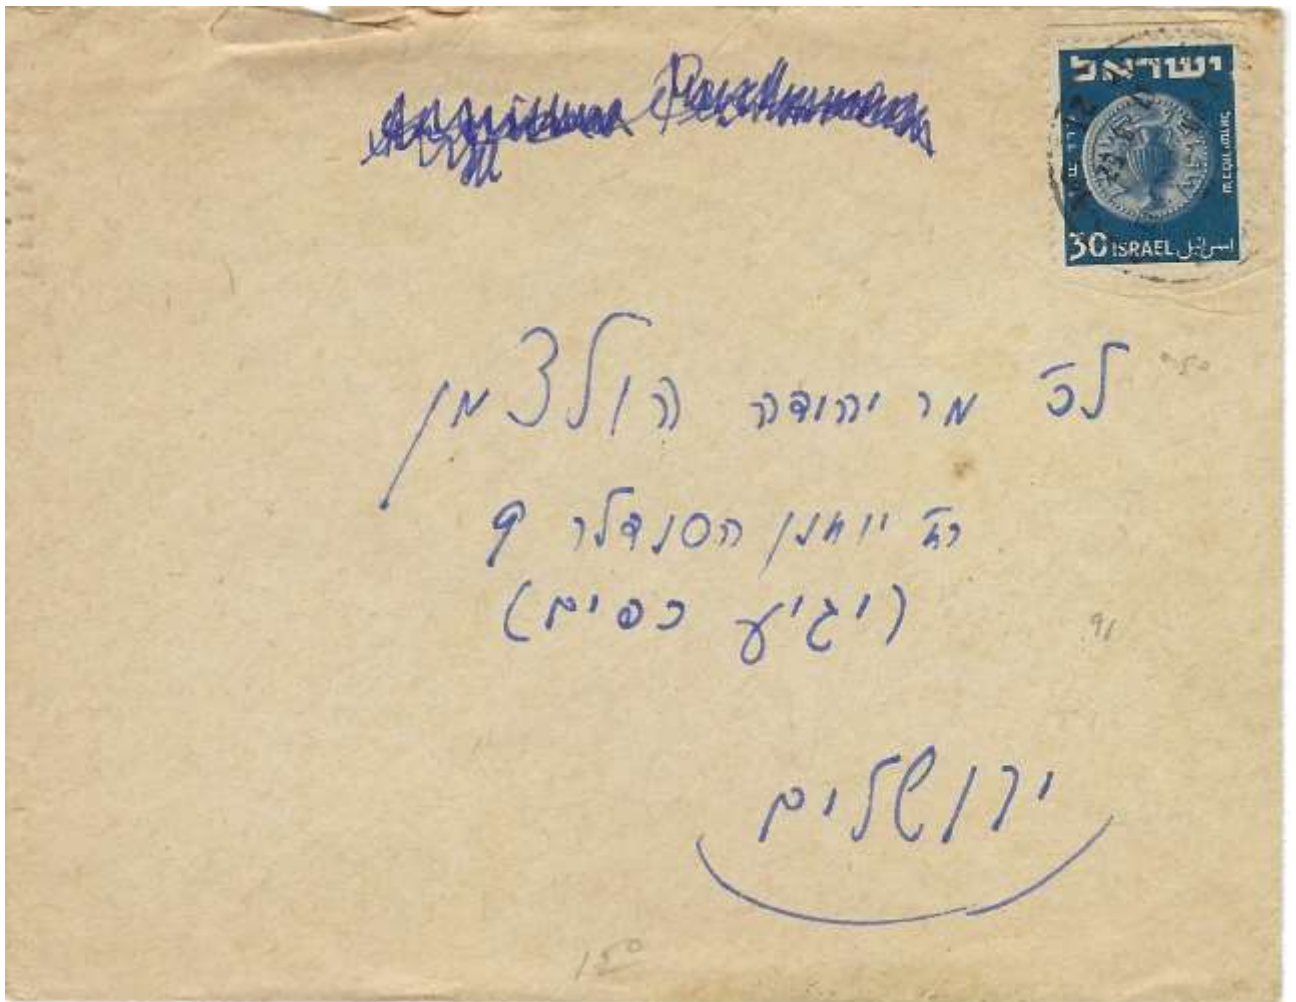 ישראל
30 ISRAEL اسرائيل
לכ' מר יהודה הולצמן
רח' יוחנן הסנדלר 9
(יגיע כפים)
ירושלים
91
150